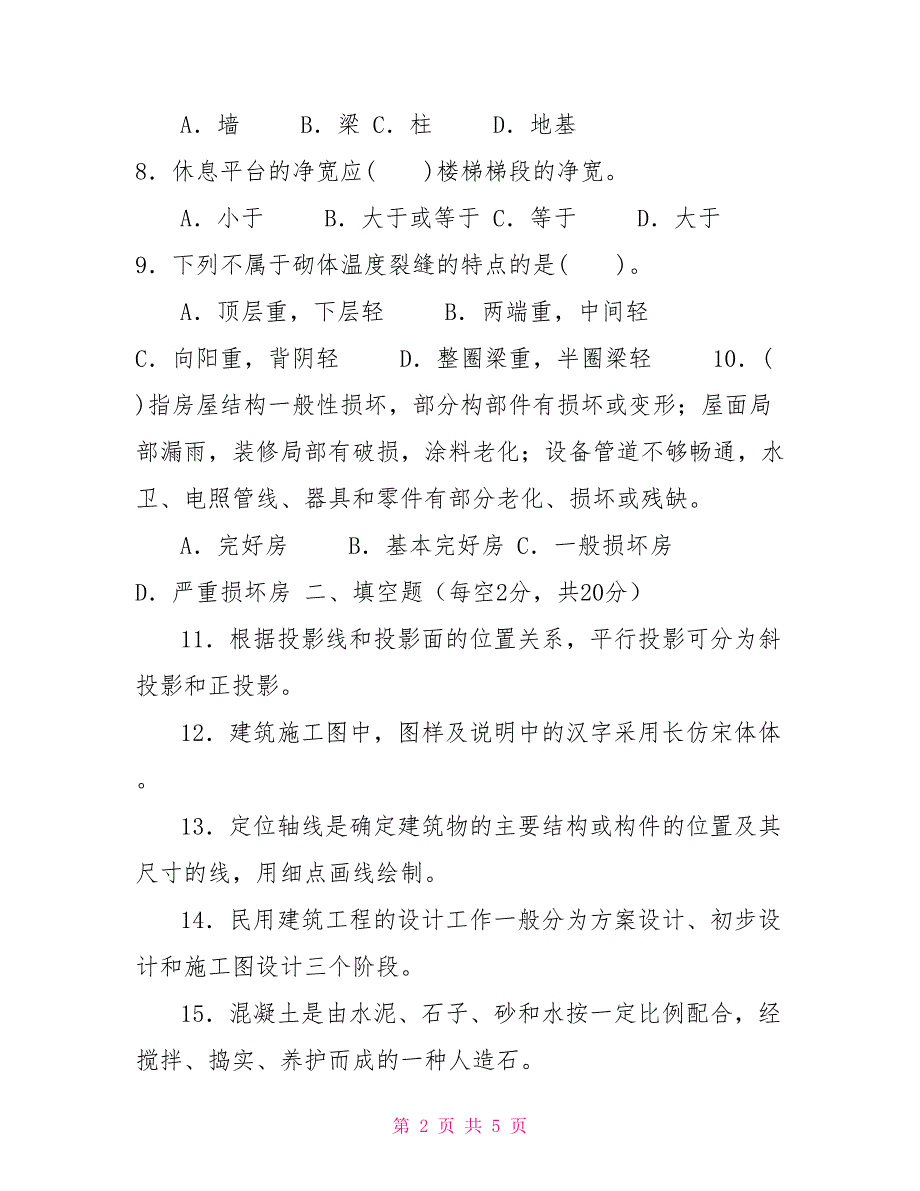 A．墙 B．梁 C．柱 D．地基
8．休息平台的净宽应( )楼梯梯段的净宽。
A．小于 B．大于或等于 C．等于 D．大于
9．下列不属于砌体温度裂缝的特点的是( )。
A．顶层重，下层轻 B．两端重，中间轻
C．向阳重，背阴轻 D．整圈梁重，半圈梁轻 10．(
)指房屋结构一般性损坏，部分构部件有损坏或变形；屋面局
部漏雨，装修局部有破损，涂料老化；设备管道不够畅通，水
卫、电照管线、器具和零件有部分老化、损坏或残缺。
A．完好房 B．基本完好房 C．一般损坏房
D．严重损坏房 二、填空题（每空2分，共20分）
11．根据投影线和投影面的位置关系，平行投影可分为斜
投影和正投影。
12．建筑施工图中，图样及说明中的汉字采用长仿宋体体
。
13．定位轴线是确定建筑物的主要结构或构件的位置及其
尺寸的线，用细点画线绘制。
14．民用建筑工程的设计工作一般分为方案设计、初步设
计和施工图设计三个阶段。
15．混凝土是由水泥、石子、砂和水按一定比例配合，经
搅拌、捣实、养护而成的一种人造石。
第 2 页 共 5 页